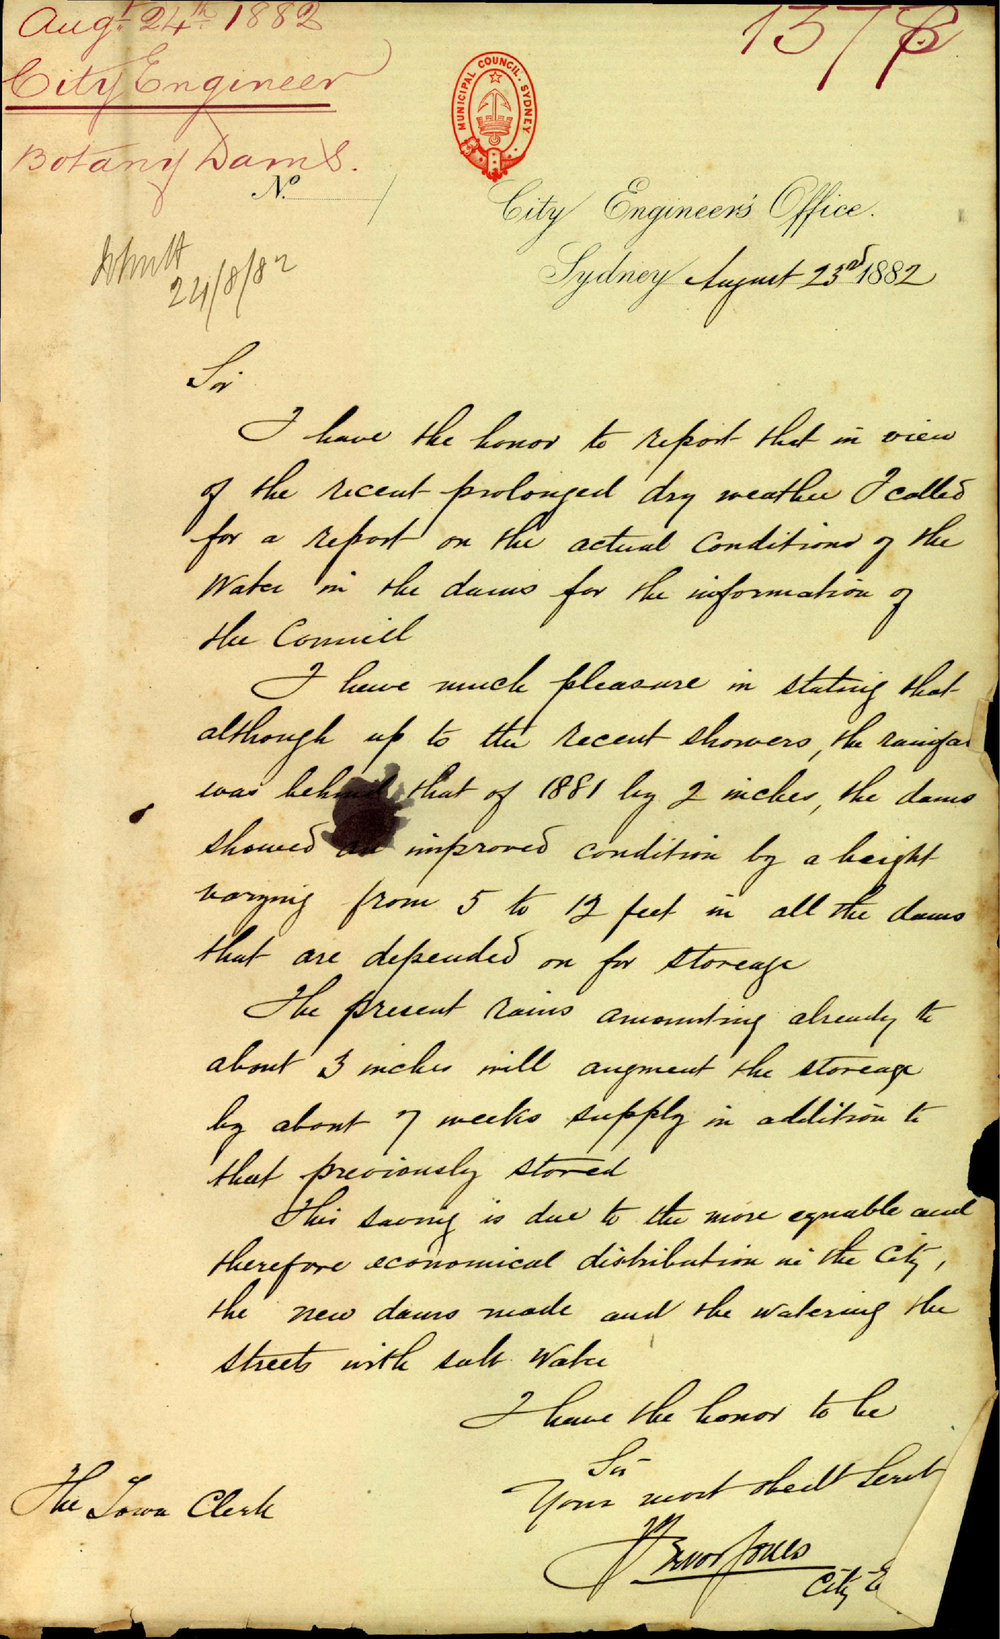 Augt. 24th. 1882
City Engineer
Botany Dams.
No.
24/8/82
1378
MUNICIPAL COUNCIL. SYDNEY
City Engineer's Office.
Sydney August 23rd 1882
Sir
I have the honor to report that in view
of the recent prolonged dry weather I called
for a report on the actual conditions of the
Water in the dams for the information of
the Council
I have much pleasure in stating that
although up to the recent showers, the rainfal
was behind that of 1881 by 2 inches, the dams
showed an improved condition by a height
varying from 5 to 12 feet in all the dams
that are depended on for storeage
The present rains amounting already to
about 3 inches will augment the storeage
by about 7 weeks supply in addition to
that previously stored
This saving is due to the more equable and
therefore economical distribution in the City,
the new dams made and the watering the
streets with salt Water
I have the honor to be
Sir
Your most obedt Servt
Trevor Jones
City E
The Town Clerk